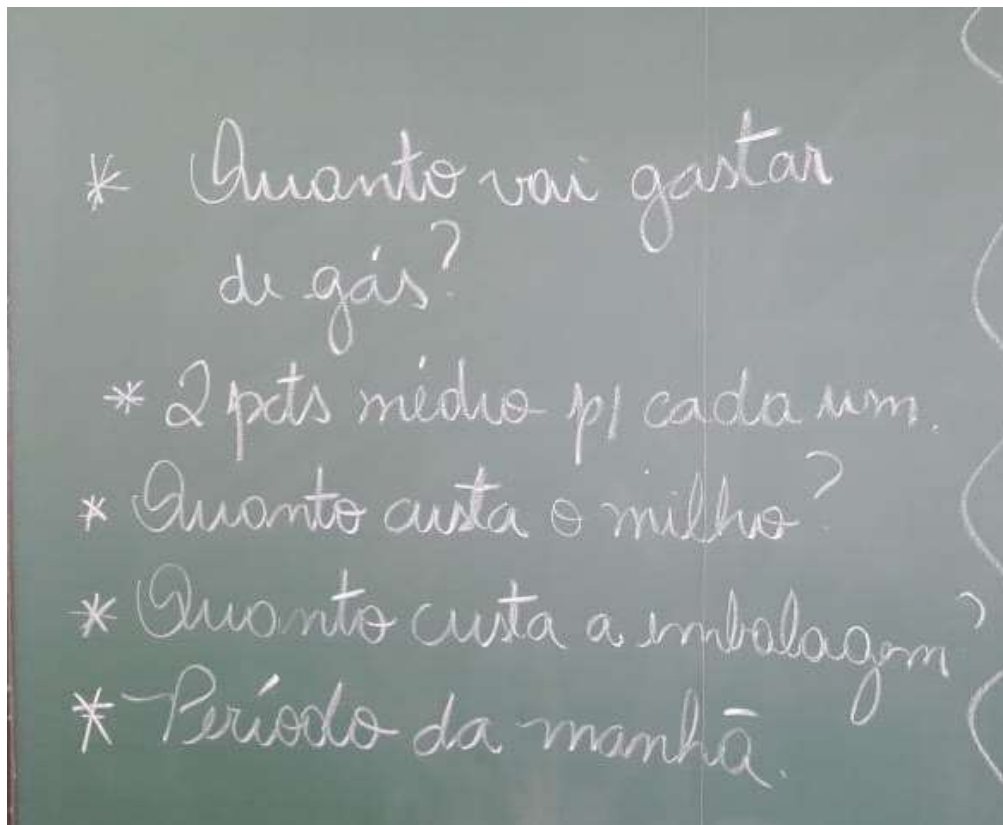 * Quanto vai gastar
de gás?
* 2 pcts médio p/ cada um.
* Quanto custa o milho?
* Quanto custa a embalagem?
* Período da manhã.